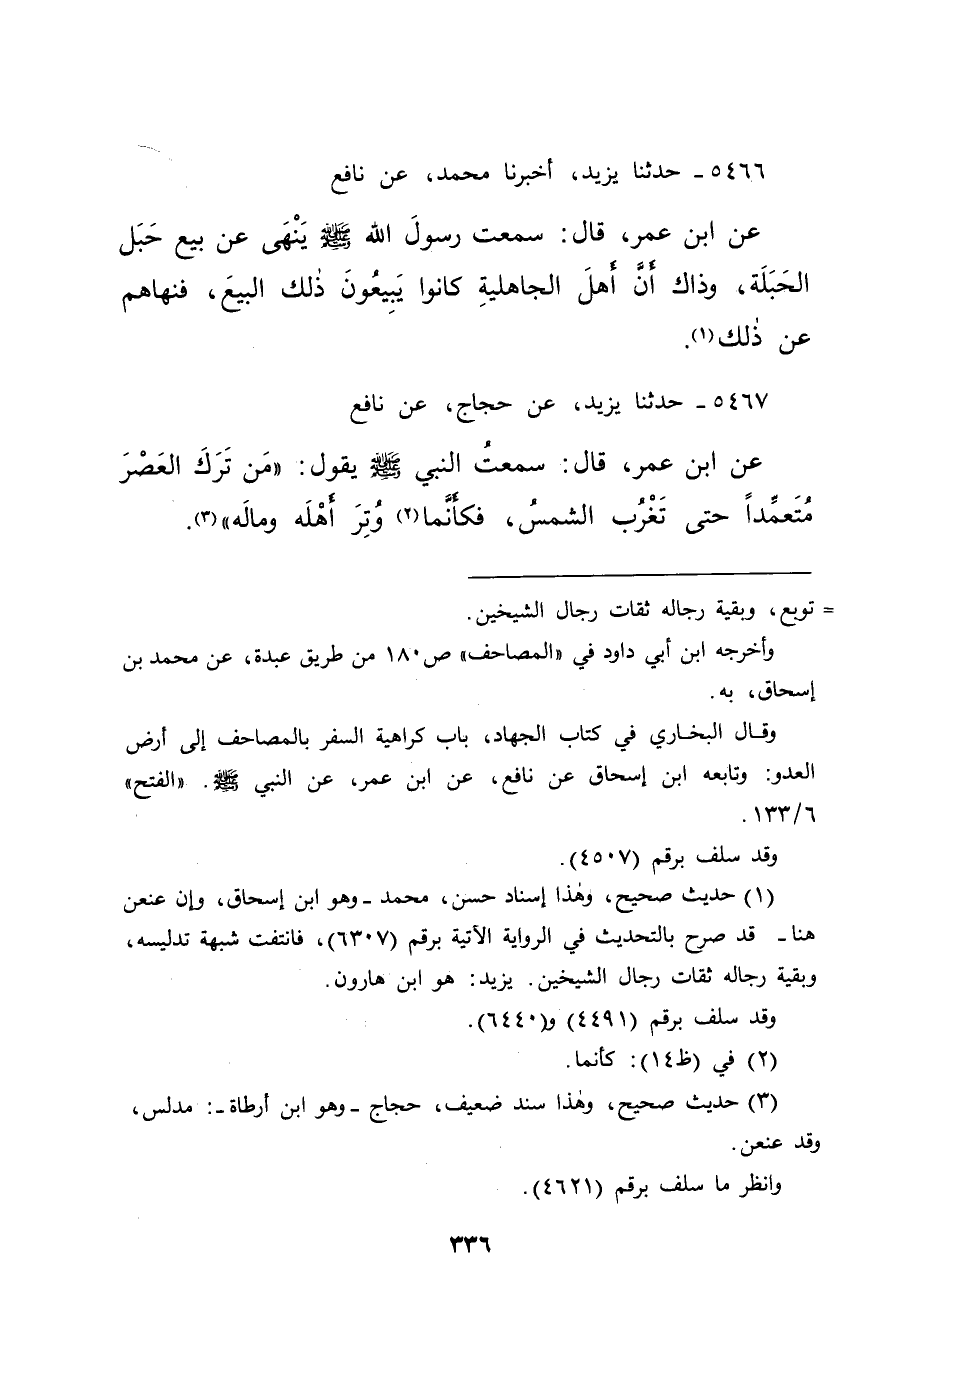 ٥٤٦٦ ـ حدثنا يزيد، أخبرنا محمد، عن نافع
عن ابن عمر، قال: سمعت رسولَ الله ﷺ يَنْهَى عن بيع حَبَل
الحَبَلَة، وذاك أَنَّ أَهلَ الجاهليةِ كانوا يَبِيعُونَ ذٰلك البيعَ، فنهاهم
عن ذٰلك(١).
٥٤٦٧ ـ حدثنا يزيد، عن حجاج، عن نافع
عن ابن عمر، قال: سمعتُ النبي ﷺ يقول: «مَن تَرَكَ العَصْرَ
مُتَعمِّداً حتى تَغْرُب الشمسُ، فكأَنَّما(٢) وُتِرَ أَهْلَه ومالَه»(٣).
= توبع، وبقية رجاله ثقات رجال الشيخين.
وأخرجه ابن أبي داود في «المصاحف» ص١٨٠ من طريق عبدة، عن محمد بن
إسحاق، به.
وقال البخاري في كتاب الجهاد، باب كراهية السفر بالمصاحف إلى أرض
العدو: وتابعه ابن إسحاق عن نافع، عن ابن عمر، عن النبي ﷺ. «الفتح»
١٣٣/٦.
وقد سلف برقم (٤٥٠٧).
(١) حديث صحيح، وهٰذا إسناد حسن، محمد ـ وهو ابن إسحاق، وإن عنعن
هنا ـ قد صرح بالتحديث في الرواية الآتية برقم (٦٣٠٧)، فانتفت شبهة تدليسه،
وبقية رجاله ثقات رجال الشيخين. يزيد: هو ابن هارون.
وقد سلف برقم (٤٤٩١) و(٦٤٤٠).
(٢) في (ظ١٤): كأنما.
(٣) حديث صحيح، وهٰذا سند ضعيف، حجاج ـ وهو ابن أرطاة ـ: مدلس،
وقد عنعن.
وانظر ما سلف برقم (٤٦٢١).
٣٣٦